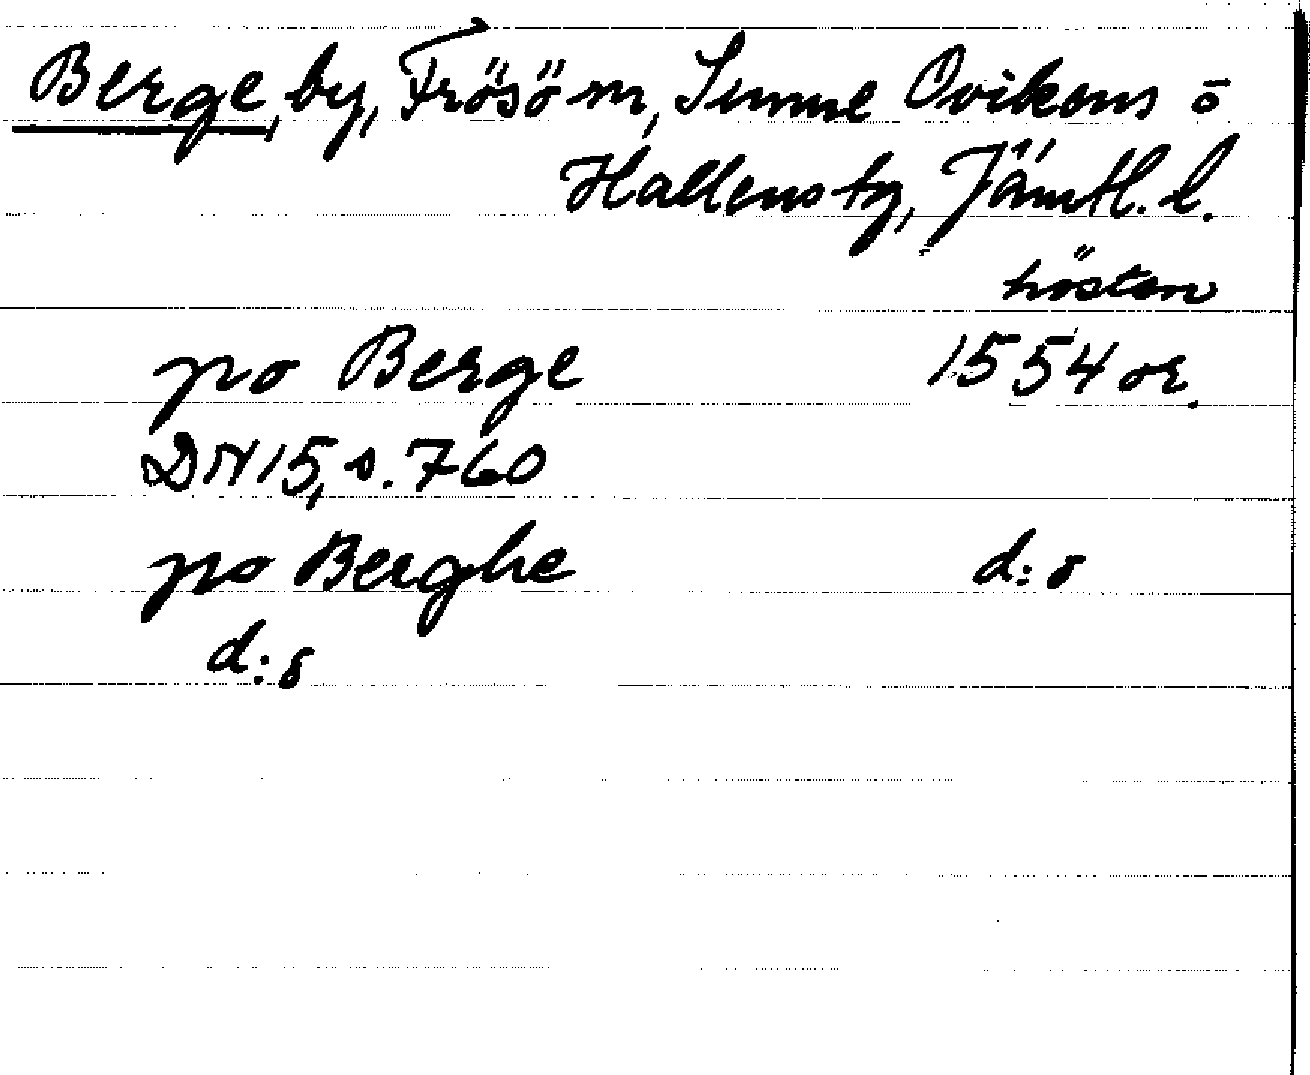 Berge, by, Frösö sn, Sunne Ovikens o
Hallens tg, Jämtl. l.
hösten
po Berge 1554 or.
DN 15, s. 760
po Berghe d:o
d:o